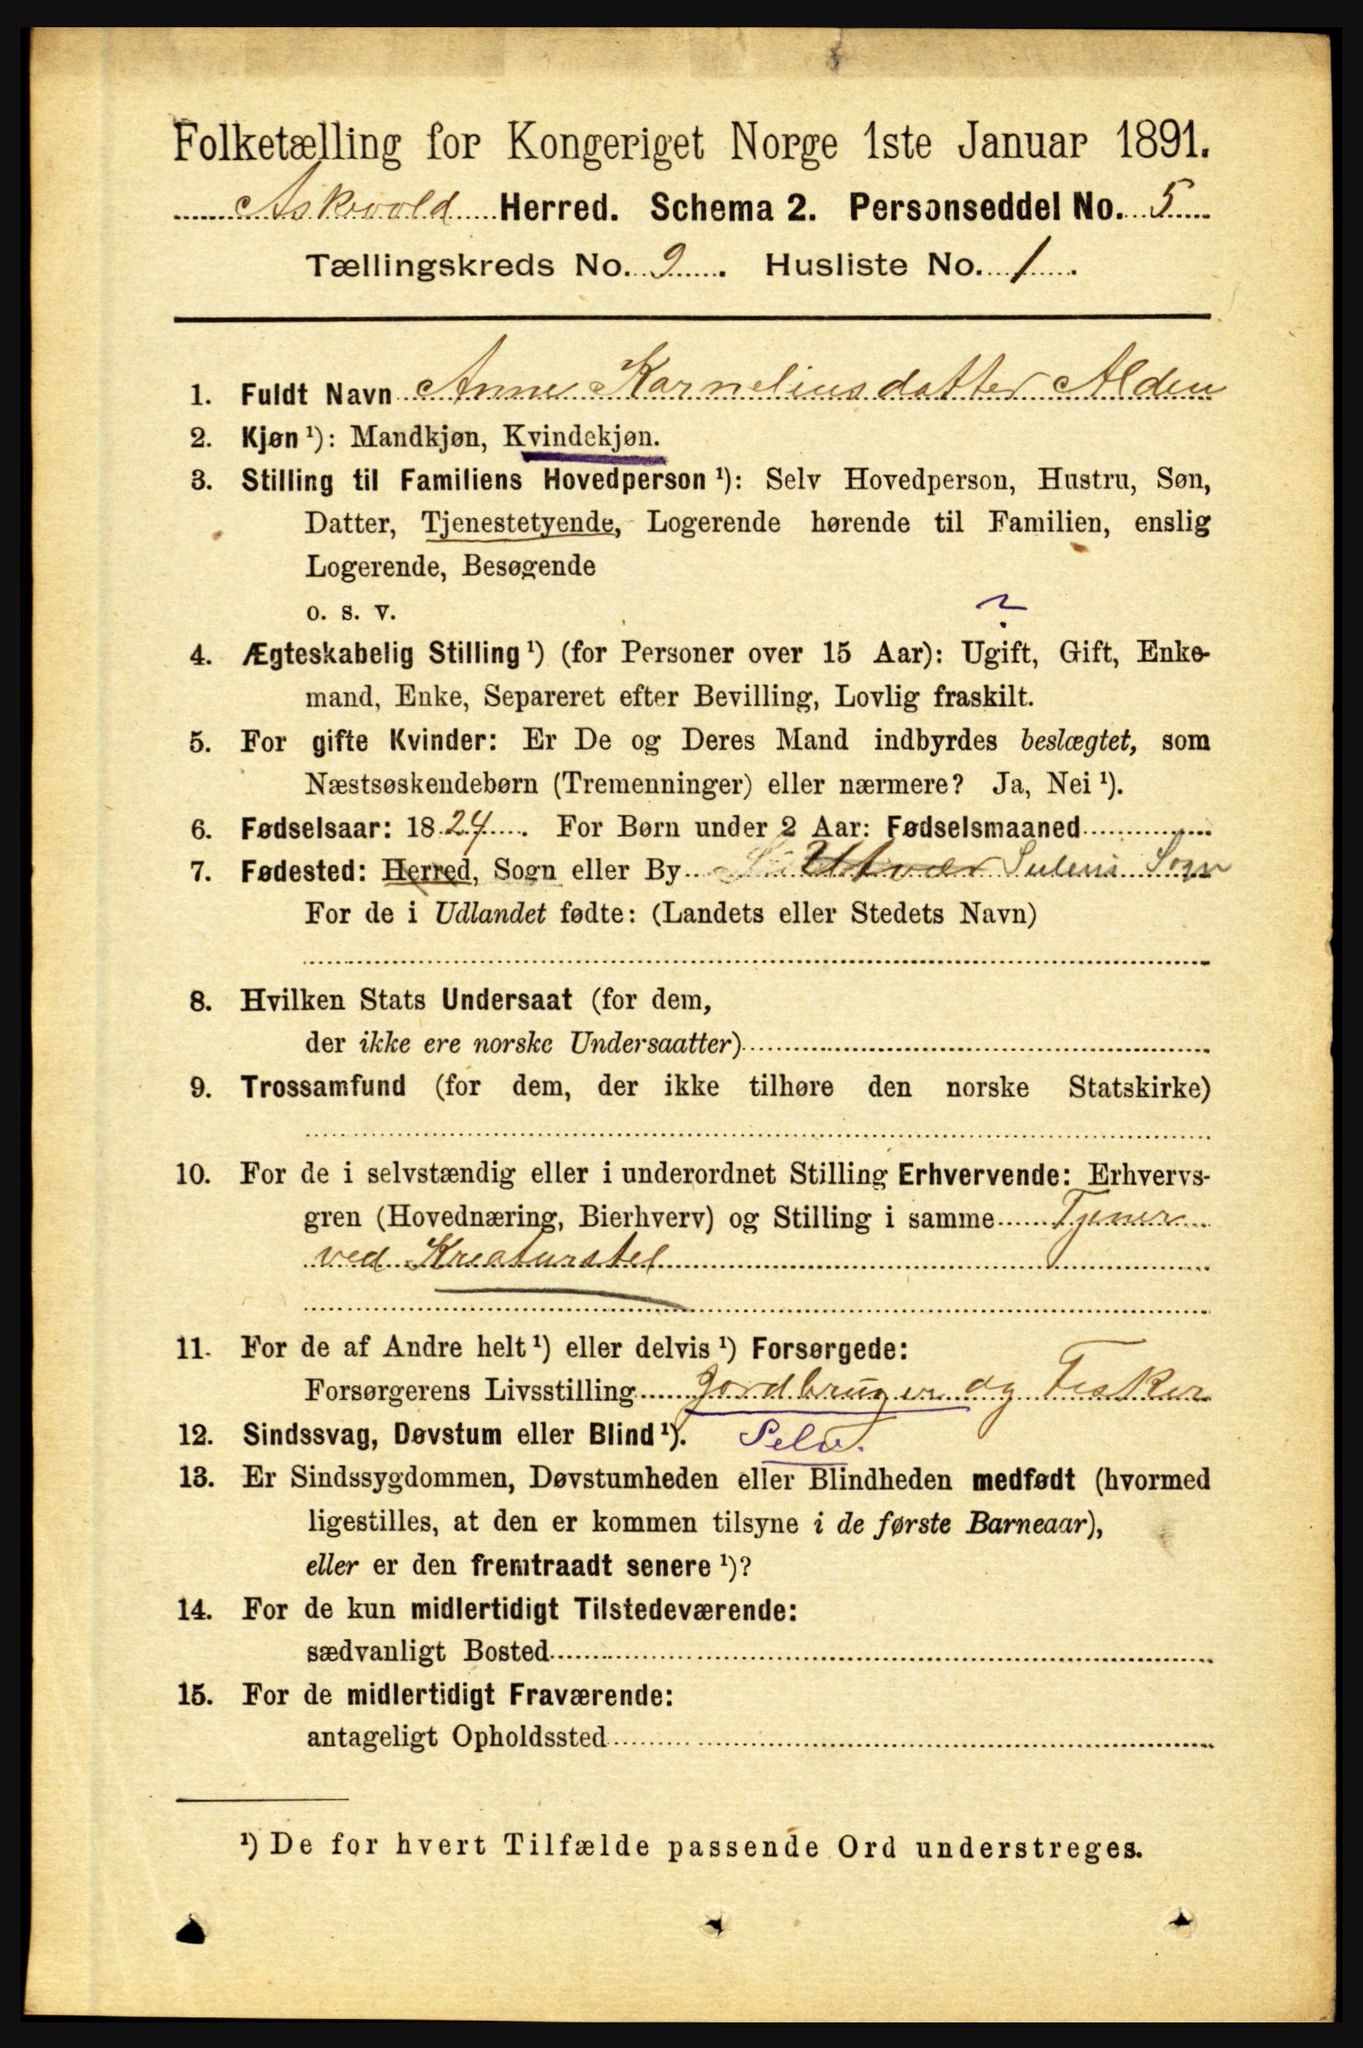 Folketælling for Kongeriget Norge 1ste Januar 1891.
Askvold Herred. Schema 2. Personseddel No. 5
Tællingskreds No. 9. Husliste No. 1.
1. Fuldt Navn Anne Karneliusdatter Alden
2. Kjøn ¹): Mandkjøn, Kvindekjøn.
3. Stilling til Familiens Hovedperson ¹): Selv Hovedperson, Hustru, Søn,
Datter, Tjenestetyende, Logerende hørende til Familien, enslig
Logerende, Besøgende
o. s. v.
?
4. Ægteskabelig Stilling ¹) (for Personer over 15 Aar): Ugift, Gift, Enke-
mand, Enke, Separeret efter Bevilling, Lovlig fraskilt.
5. For gifte Kvinder: Er De og Deres Mand indbyrdes beslægtet, som
Næstsøskendebørn (Tremenninger) eller nærmere? Ja, Nei ¹).
6. Fødselsaar: 1824. For Børn under 2 Aar: Fødselsmaaned
7. Fødested: Herred, Sogn eller By Utvær Sulens Sogn
For de i Udlandet fødte: (Landets eller Stedets Navn)
8. Hvilken Stats Undersaat (for dem,
der ikke ere norske Undersaatter)
9. Trossamfund (for dem, der ikke tilhøre den norske Statskirke)
10. For de i selvstændig eller i underordnet Stilling Erhvervende: Erhvervs-
gren (Hovednæring, Bierhverv) og Stilling i samme Tjener
ved Kreaturstel
11. For de af Andre helt ¹) eller delvis ¹) Forsørgede:
Forsørgerens Livsstilling Jordbruger og Fisker
12. Sindssvag, Døvstum eller Blind ¹). Selv.
13. Er Sindssygdommen, Døvstumheden eller Blindheden medfødt (hvormed
ligestilles, at den er kommen tilsyne i de første Barneaar),
eller er den fremtraadt senere ¹)?
14. For de kun midlertidigt Tilstedeværende:
sædvanligt Bosted
15. For de midlertidigt Fraværende:
antageligt Opholdssted
¹) De for hvert Tilfælde passende Ord understreges.